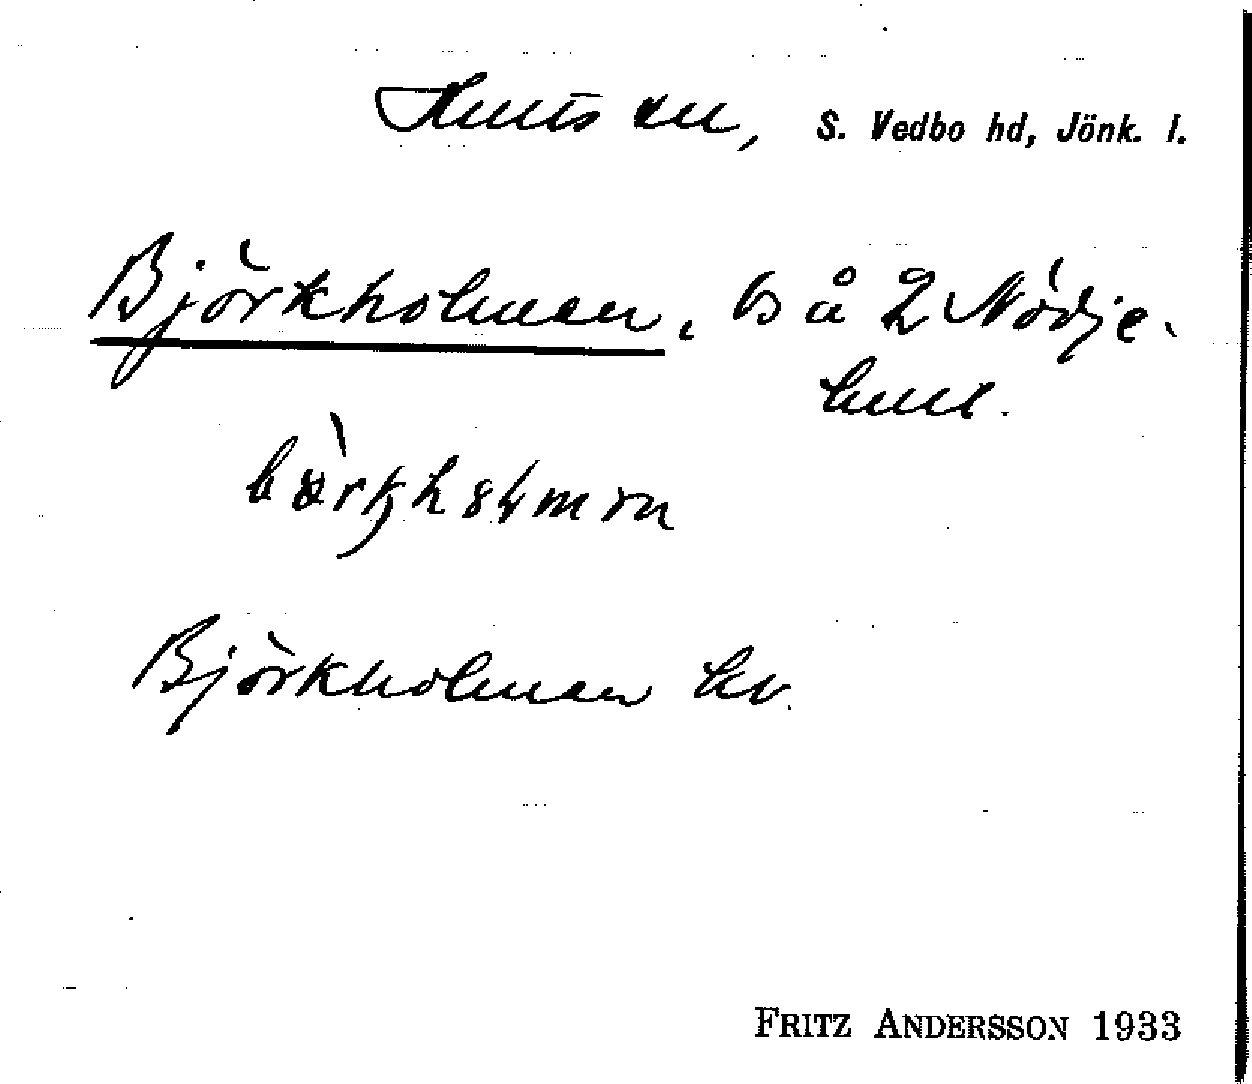 Hults sn, S. Vedbo hd, Jönk. l.
Björkholmen, ls å 2 Nödje-
hult.
Björkholmen hv.
FRITZ ANDERSSON 1933